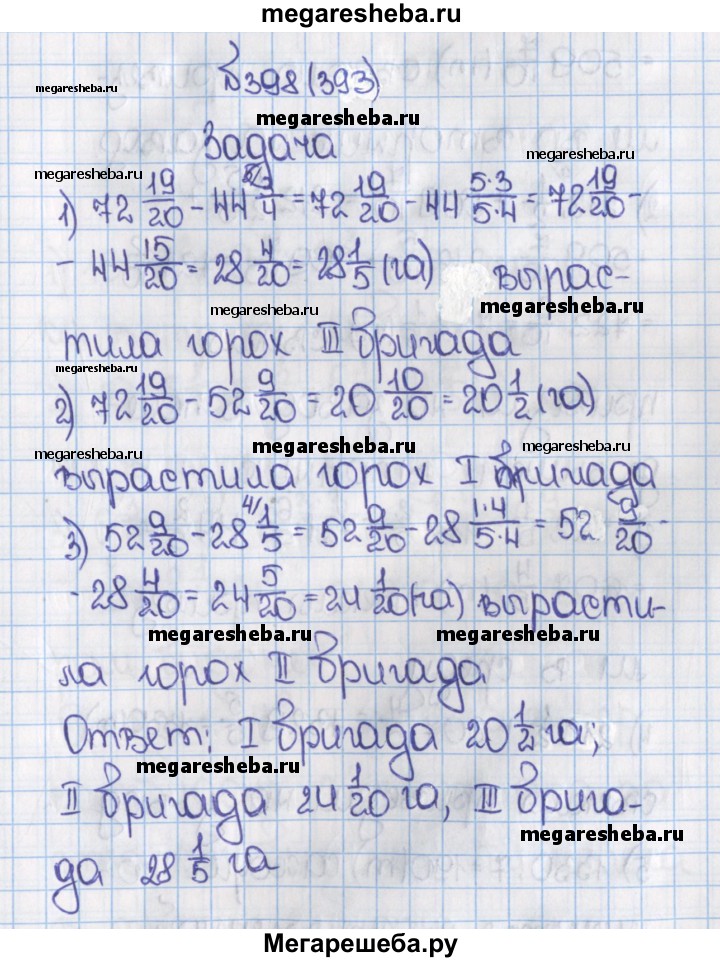 megaresheba.ru
№398 (393)
megaresheba.ru
megaresheba.ru
Задача
megaresheba.ru
megaresheba.ru
1) 72 19/20 - 44 5/ 3/4 = 72 19/20 - 44 5·3/5·4 = 72 19/20 -
- 44 15/20 = 28 4/20 = 28 1/5 (га) вырас-
megaresheba.ru
megaresheba.ru
тила горох III бригада
megaresheba.ru
2) 72 19/20 - 52 9/20 = 20 10/20 = 20 1/2 (га)
megaresheba.ru
megaresheba.ru
megaresheba.ru
вырастила горох I бригада
3) 52 9/20 - 28 4/ 1/5 = 52 9/20 - 28 1·4/5·4 = 52 9/20 -
- 28 4/20 = 24 5/20 = 24 1/20 (га) вырасти-
megaresheba.ru
megaresheba.ru
ла горох II бригада
Ответ: I бригада 20 1/2 га;
megaresheba.ru
II бригада 24 1/20 га, III брига-
megaresheba.ru
да 28 1/5 га
Мегарешеба.ру